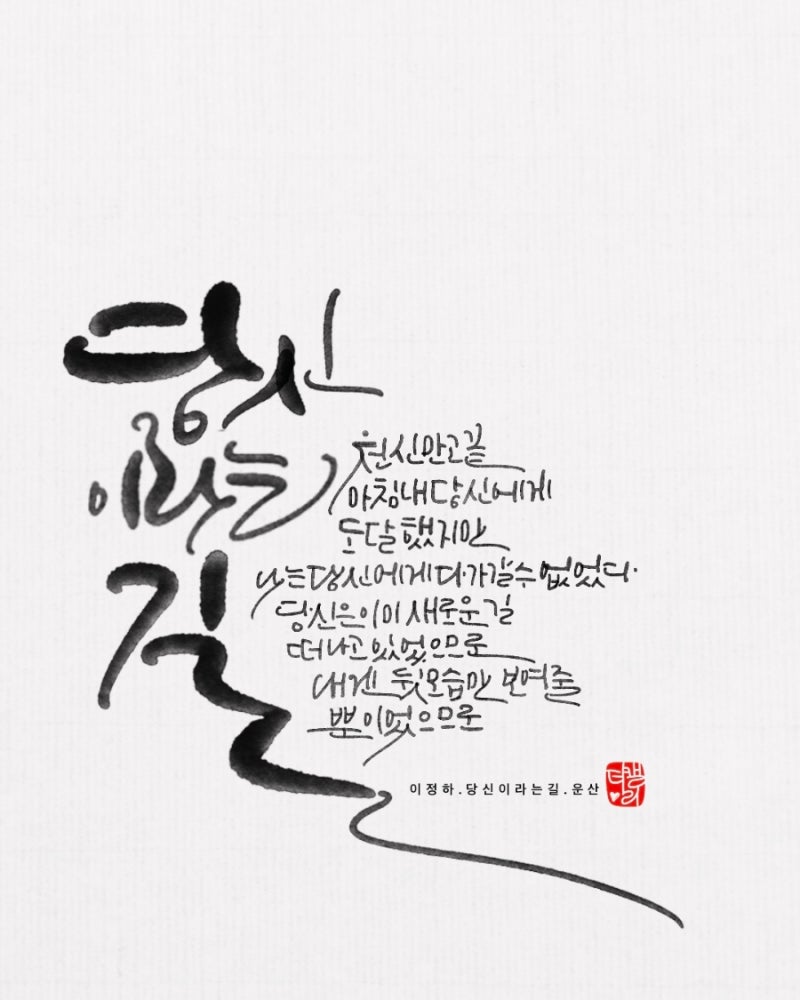 당신
이라는
길
천신만고 끝
마침내 당신에게
도달했지만
나는 당신에게 다가갈 수 없었다.
당신은 이미 새로운 길
떠나고 있었으므로
내겐 뒷모습만 보여줄
뿐이었으므로
이정하.당신이라는길.운산